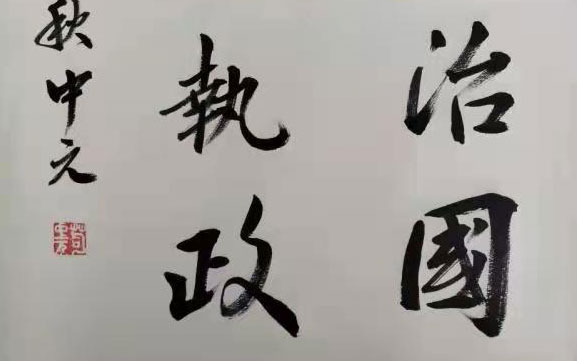 治國
執政
秋中元